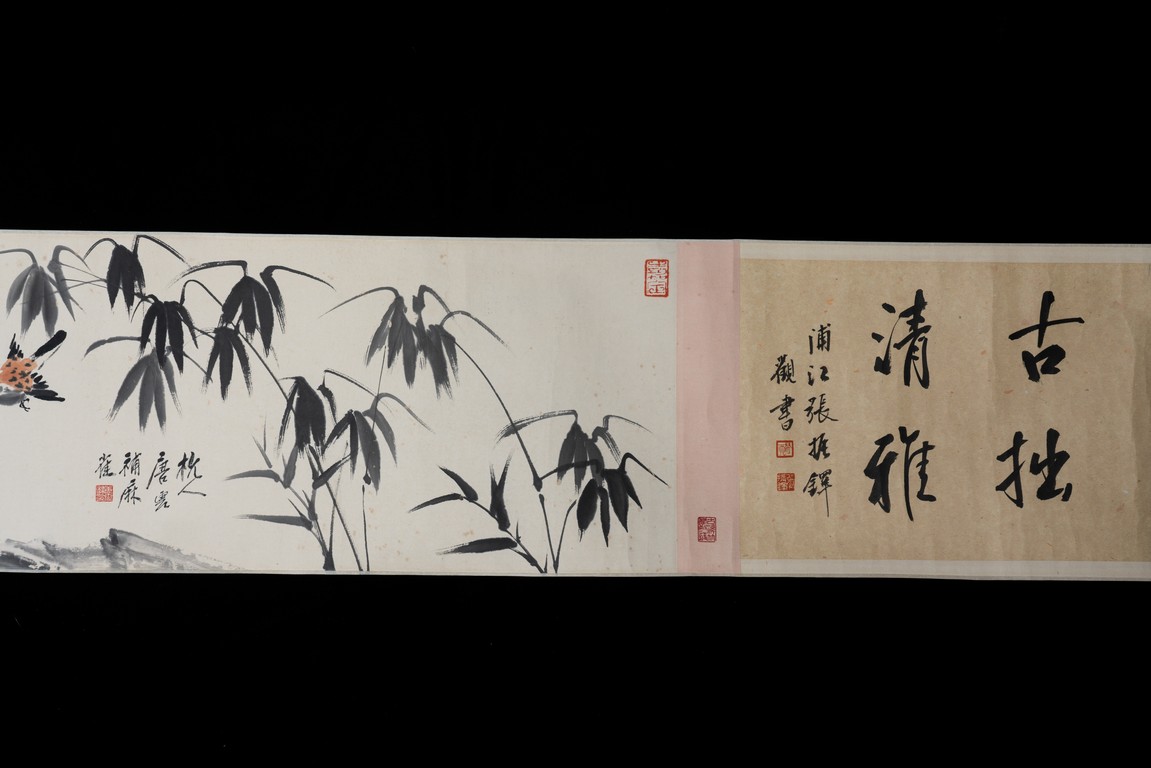 古拙
清雅
浦江張振鐸
觀書
杭人
唐雲
補麻
雀